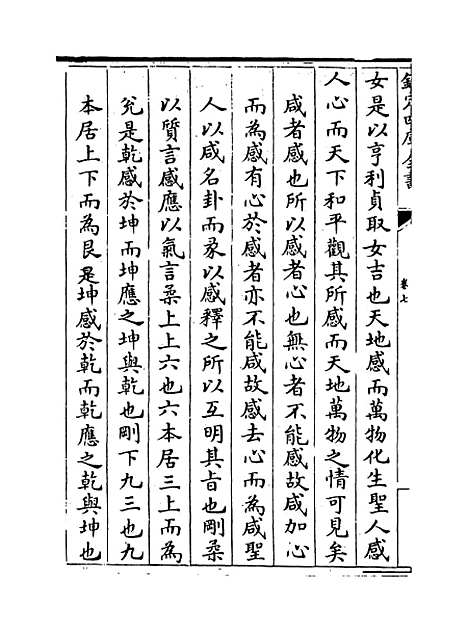 欽定四庫全書
卷七
女是以亨利貞取女吉也天地感而萬物化生聖人感
人心而天下和平觀其所感而天地萬物之情可見矣
咸者感也所以感者心也無心者不能感故咸加心
而為感有心於感者亦不能咸故感去心而為咸聖
人以咸名卦而彖以感釋之所以互明其旨也剛柔
以質言感應以氣言柔上上六也六本居三上而為
兊是乾感於坤而坤應之坤與乾也剛下九三也九
本居上下而為艮是坤感於乾而乾應之乾與坤也